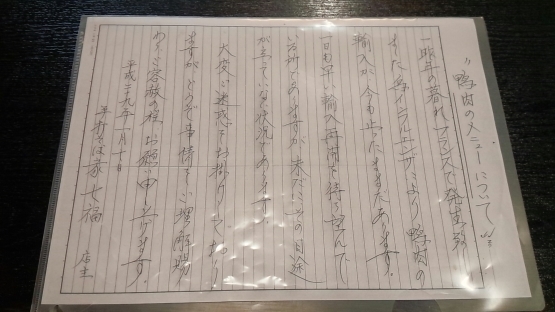 〃鴨肉のメニューについて〃
一昨年の暮れ、フランスで発生致し
ました鳥インフルエンザにより、鴨肉の
輸入が今も止ったままであります。
一日も早い輸入再開を待ち望んで
いる所でありますが未だにその目途
が立っていない状況であります。
大変ご迷惑をお掛けして居り
ますがどうぞ事情をご理解賜
わりご容赦の程、お願い申し上げます。
平成二九年一月十日
手打そば家 七福 店主